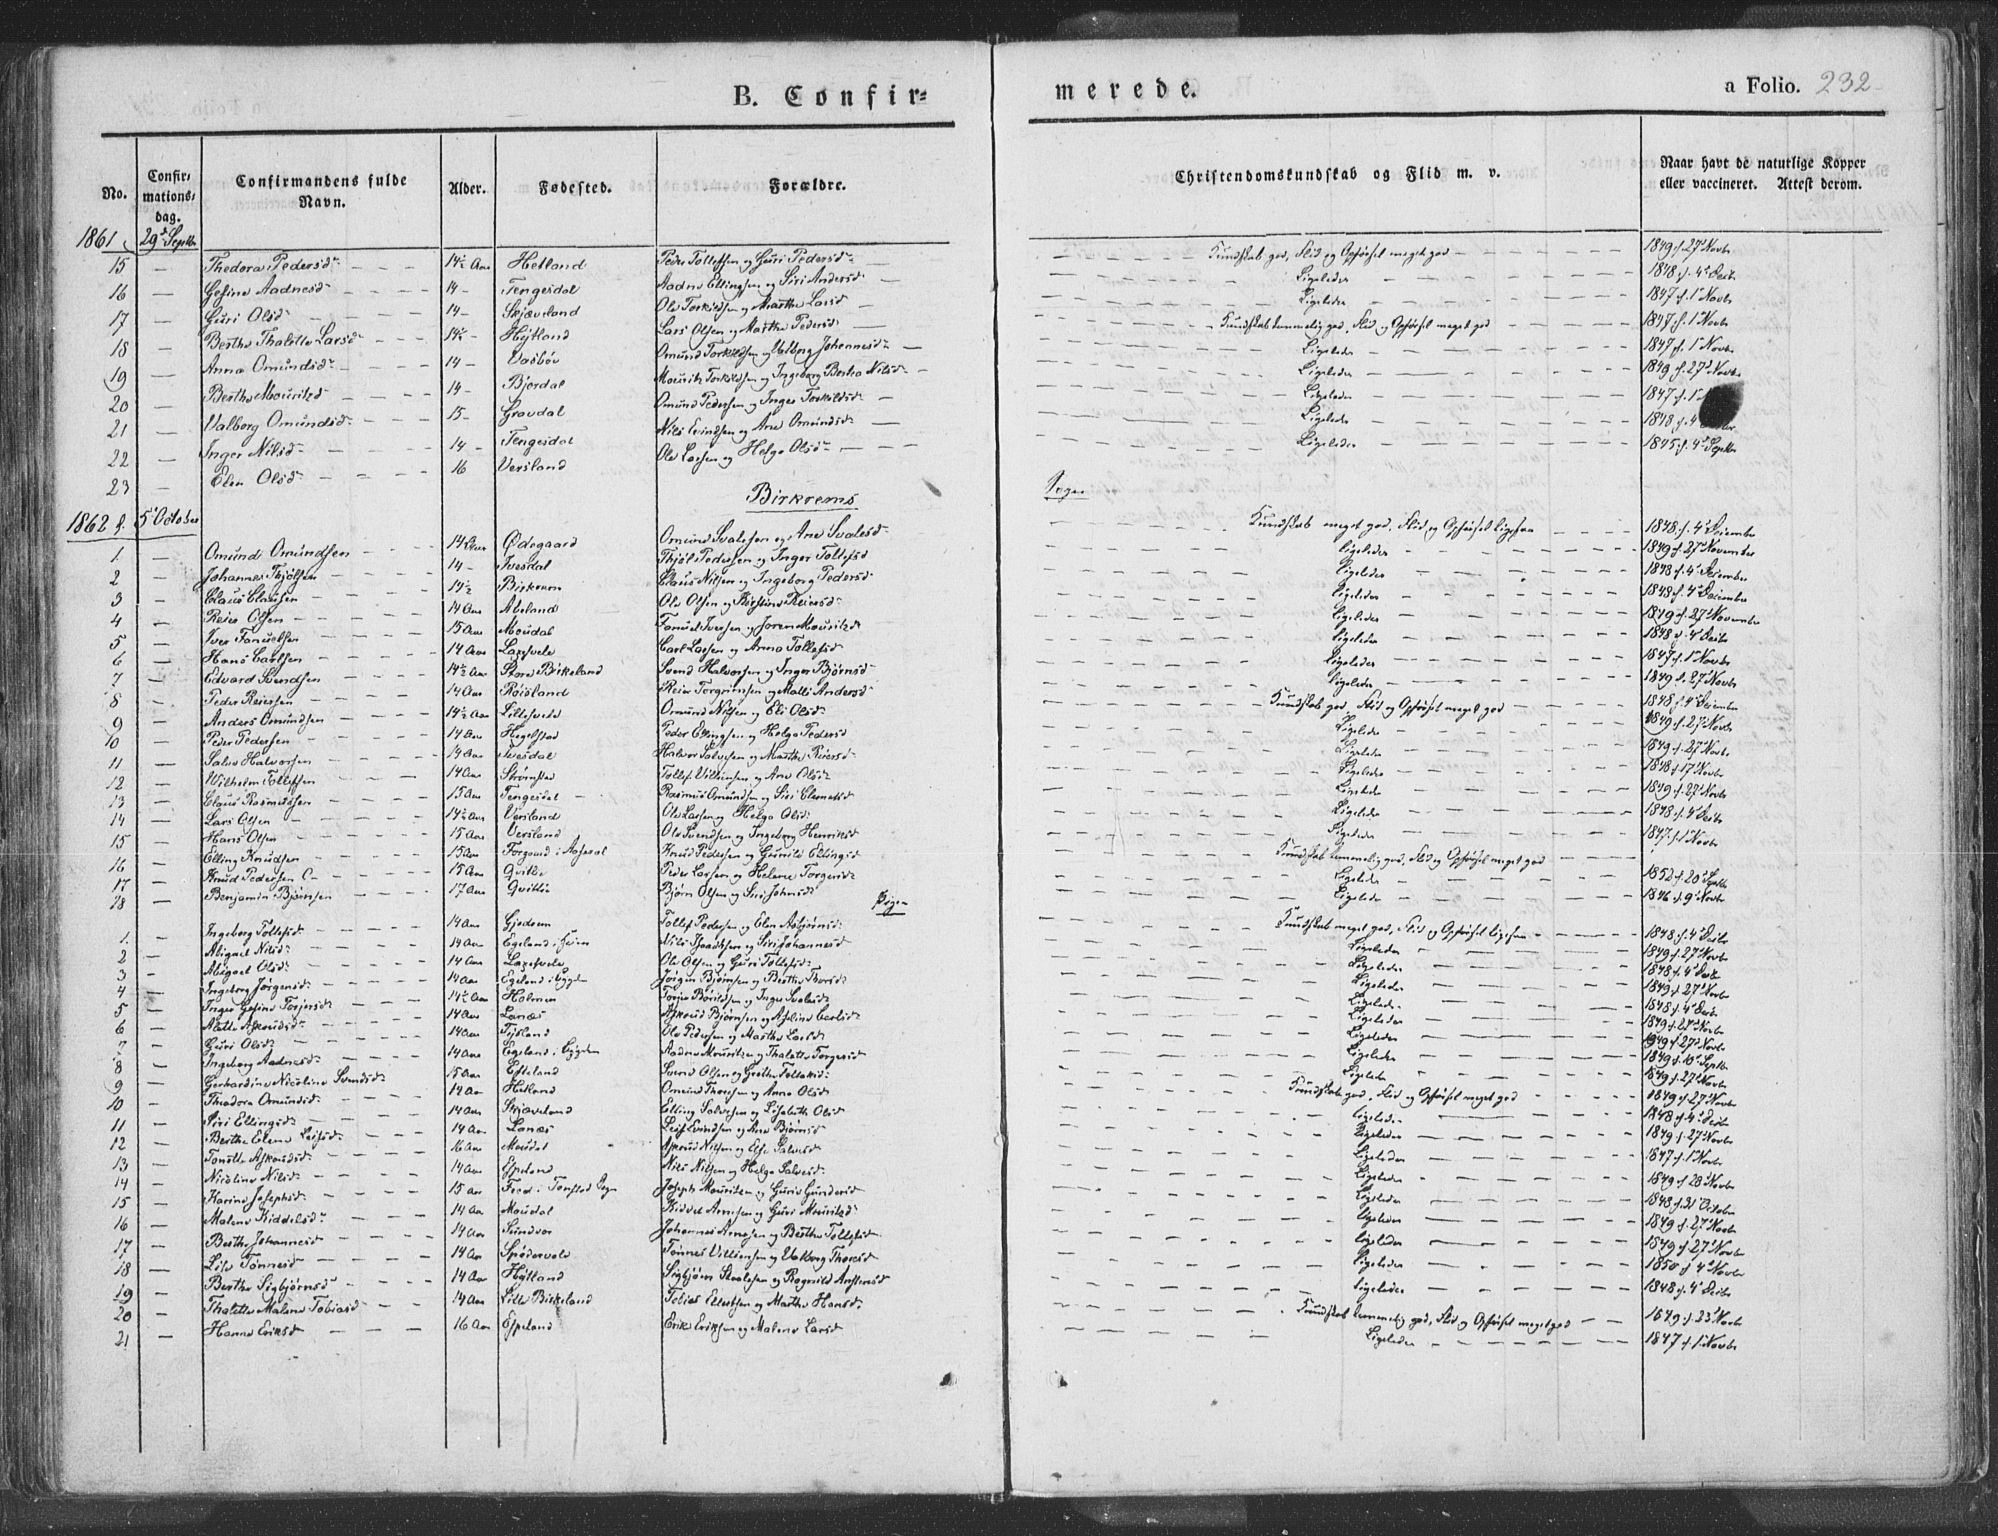 B. Confir= merede. a Folio. 232
No. Confir, mations, dag. Confirmandens fulde Navn. Alder. Fødested. Forældre. Christendomskundskab og Flid m. v. Naar havt de naturlige Kopper eller vaccineret. Attest derom.
1861 29d Septbr
15 — Thedora Pedersd: 14½ Aar Hetland Peder Tollefsen og Guri Pedersd: Kundskab god, Flid og Opførsel meget god 1849 f. 27 Novbr
16 — Gesine Aadnesd: 14 — Tengesdal Aadne Ellingsen og Siri Andersd: Ligeledes 1848 f. 4 Decbr
17 — Guri Olsd: 14 — Skjæveland Ole Torkildsen og Marthe Larsd: Ligeledes 1847 f. 1 Novbr
18 — Berthe Thalette Larsd: 14½ — Hytland Lars Olsen og Marthe Pedersd: Kundskab temmelig god, Flid og Opførsel meget god 1847 f. 1 Novbr
19 — Anna Omundsd: 14 — Vasbøe Omund Torkildsen og Valborg Johannesd: Ligeledes 1847 f. 1 Novbr
20 — Berthe Mouritzd: 14 — Bjordal Mouritz Torkildsen og Ingeborg Bertea Nilsd: Ligeledes 1849 f. 27 Novbr
21 — Valborg Omundsd: 15 — Gravdal Omund Pedersen og Inger Torkildsd: Ligeledes 1847 f. 1
22 — Inger Nilsd: 14 — Tengesdal Nils Evindsen og Ane Omundsd: Ligeledes 1848 f. 4
23 — Elen Olsd: 16 Versland Ole Larsen og Helga Olsd: Ligeledes 1845 f. 4 Septbr
Birkrems Sogn
1862 d. 5 October
1 — Omund Omundsen 14 Aar Ødegaard Omund Svalesen og Ane Svalesd: Kundskab meget god, Flid og Opførsel ligesaa 1848 f. 4 December
2 — Johannes Thjølsen 14 — Ivesdal Thjøl Pedersen og Inger Tollefsd: Ligeledes 1849 f. 27 November
3 — Claus Clausen 14½ Birkrem Claus Nilsen og Ingeborg Pedersd: Ligeledes 1848 f. 4 December
4 — Reier Olsen 14 Aar Aveland Ole Olsen og Kirstine Reiersd: Ligeledes 1848 f. 4 December
5 — Iver Tanuelsen 15 Aar Moudal Tanuel Iversen og Soren Mouritzd: Ligeledes 1849 f. 27 November
6 — Hans Carlsen 14 Aar Laxesvele Carl Larsen og Anna Tollefsd: Ligeledes 1848 f. 4 Decbr
7 — Edvard Svendsen 14½ Aar Store Birkeland Svend Halvorsen og Inger Bjørnsd: Ligeledes 1847 f. 1 Novbr
8 — Peder Reiersen 14 Aar Røisland Reier Torgrimsen og Malli Andersd: Ligeledes 1849 f. 27 Novbr
9 — Anders Omundsen 14½ Aar Lillesvele Omund Nilsen og Eli Olsd: Kundskab god, Flid og Opførsel meget god 1848 f. 4 December
10 — Peder Pedersen 14 Aar Hegelstad Peder Ellingsen og Helga Pedersd: Ligeledes 1849 f. 27 Novbr
11 — Salve Halvorsen 14 Aar Ivesdal Halvor Salvesen og Marthe Reiersd: Ligeledes 1849 f. 27 Novbr
12 — Wilhelm Tollefsen 14 Aar Strømstad Tollef Villumsen og Ane Olsd: Ligeledes 1848 f. 17 Novbr
13 — Claus Rasmussen 15 Aar Tengesdal Rasmus Omundsen og Siri Clemetsd: Ligeledes 1849 f. 27 Novbr
14 — Lars Olsen 14½ Aar Versland Ole Larsen og Helga Olsd: Ligeledes 1848 f. 4 Decbr
15 — Hans Olsen 15 Aar Versland Ole Svendsen og Ingeborg Henriksd: Ligeledes 1847 f. 1 Novbr
16 — Elling Knudsen 15 Aar Torgund i Aaseral Knud Pedersen og Gunild Ellingsd: Kundskab temmelig god, Flid og Opførsel meget god
17 — Knud Pedersen 15 Aar Qvitle Peder Larsen og Helene Torgersd: Ligeledes 1852 f. 20 Septbr
18 — Benjamin Bjørnsen 17 Aar Qvitle Bjørn Olsen og Siri Johnsd: Ligeledes 1846 f. 9 Novbr
Piger
1 — Ingeborg Tollefsd: 14 Aar Gjedrem Tollef Pedersen og Elen Asbjørnsd: Kundskab meget god, Flid og Opførsel ligesaa 1848 f. 4 Decbr
2 — Abigael Nilsd: 14 Aar Egeland i Heien Nils Isaachsen og Siri Johannesd: Ligeledes 1849 f. 27 Novbr
3 — Abigael Olsd: 14 Aar Laxesvele Ole Olsen og Guri Tollefsd: Ligeledes 1848 f. 4 Decbr
4 — Ingeborg Jørgensd: 14 Aar Egeland i Bygden Jørgen Bjørnsen og Berthe Thorsd: Ligeledes 1849 f. 27 Novbr
5 — Inger Gesine Torjersd: 14½ Aar Holmen Torjer Børildsen og Inger Svalesd: Ligeledes 1848 f. 4 Decbr
6 — Alette Askoudsd: 14 Aar Lanæs Askoud Bjørnsen og Aseline Carlsd: Ligeledes 1849 f. 27 Novbr
7 — Guri Olsd: 14 Aar Tysland Ole Pedersen og Marthe Larsd: Ligeledes 1849 f. 27 Novbr
8 — Ingeborg Aadnesd: 14 Aar Egeland i Bygden Aadne Mouritzen og Thalette Torgersd: Ligeledes 1849 f. 10 Septbr
9 — Gerhardine Nicoline Svendsd: 15 Aar Efteland Svend Olsen og Grethe Tollaksd: Ligeledes 1849 f. 27 Novbr
10 — Theodora Omundsd: 14 Aar Hetland Omund Thorsen og Anna Olsd: Kundskab god, Flid og Opførsel meget god 1849 f. 27 Novbr
11 — Siri Ellingsd: 14 Aar Skjæveland Elling Salvesen og Lisabeth Olsd: Ligeledes 1848 f. 4 Decbr
12 — Berthe Elene Leifsd: 14 Aar Lanæs Leif Evindsen og Ane Bjørnsd: Ligeledes 1849 f. 27 Novbr
13 — Tonette Askoudsd: 16 Aar Moudal Askoud Nilsen og Else Salvesd: Ligeledes 1847 f. 1 Novbr
14 — Nicoline Nilsd: 14 Aar Espeland Nils Nilsen og Helga Salvesd: Ligeledes 1849 f. 28 Novbr
15 — Karine Josephsd: 15 Aar Fred i Tonstad Sogn Joseph Mouritzen og Guri Gundersd: Ligeledes 1848 f. 21 October
16 — Malene Kiddelsd: 14 Aar Moudal Kiddel Arnesen og Guri Mouritzd: Ligeledes 1849 f. 27 Novbr
17 — Berthe Johannesd: 14 Aar Sundvor Johannes Arnesen og Berthe Tollefsd: Ligeledes 1849 f. 27 Novbr
18 — Lise Tønnesd: 14 Aar Spødervold Tønnes Villumsen og Valborg Thoresd: Ligeledes 1850 f. 4 Novbr
19 — Berthe Sigbjørnsd: 14 Aar Hytland Sigbjørn Svalesen og Ragnild Anstensd: Ligeledes 1848 f. 4 Decbr
20 — Thalette Malene Tobiasd: 14 Aar Lille Birkeland Tobias Ellertsen og Marthe Hansd: Kundskab temmelig god, Flid og Opførsel meget god 1849 f. 23 Novbr
21 — Hanne Eriksd: 16 Aar Espeland Erik Eriksen og Malene Larsd: Ligeledes 1847 f. 1 Novbr